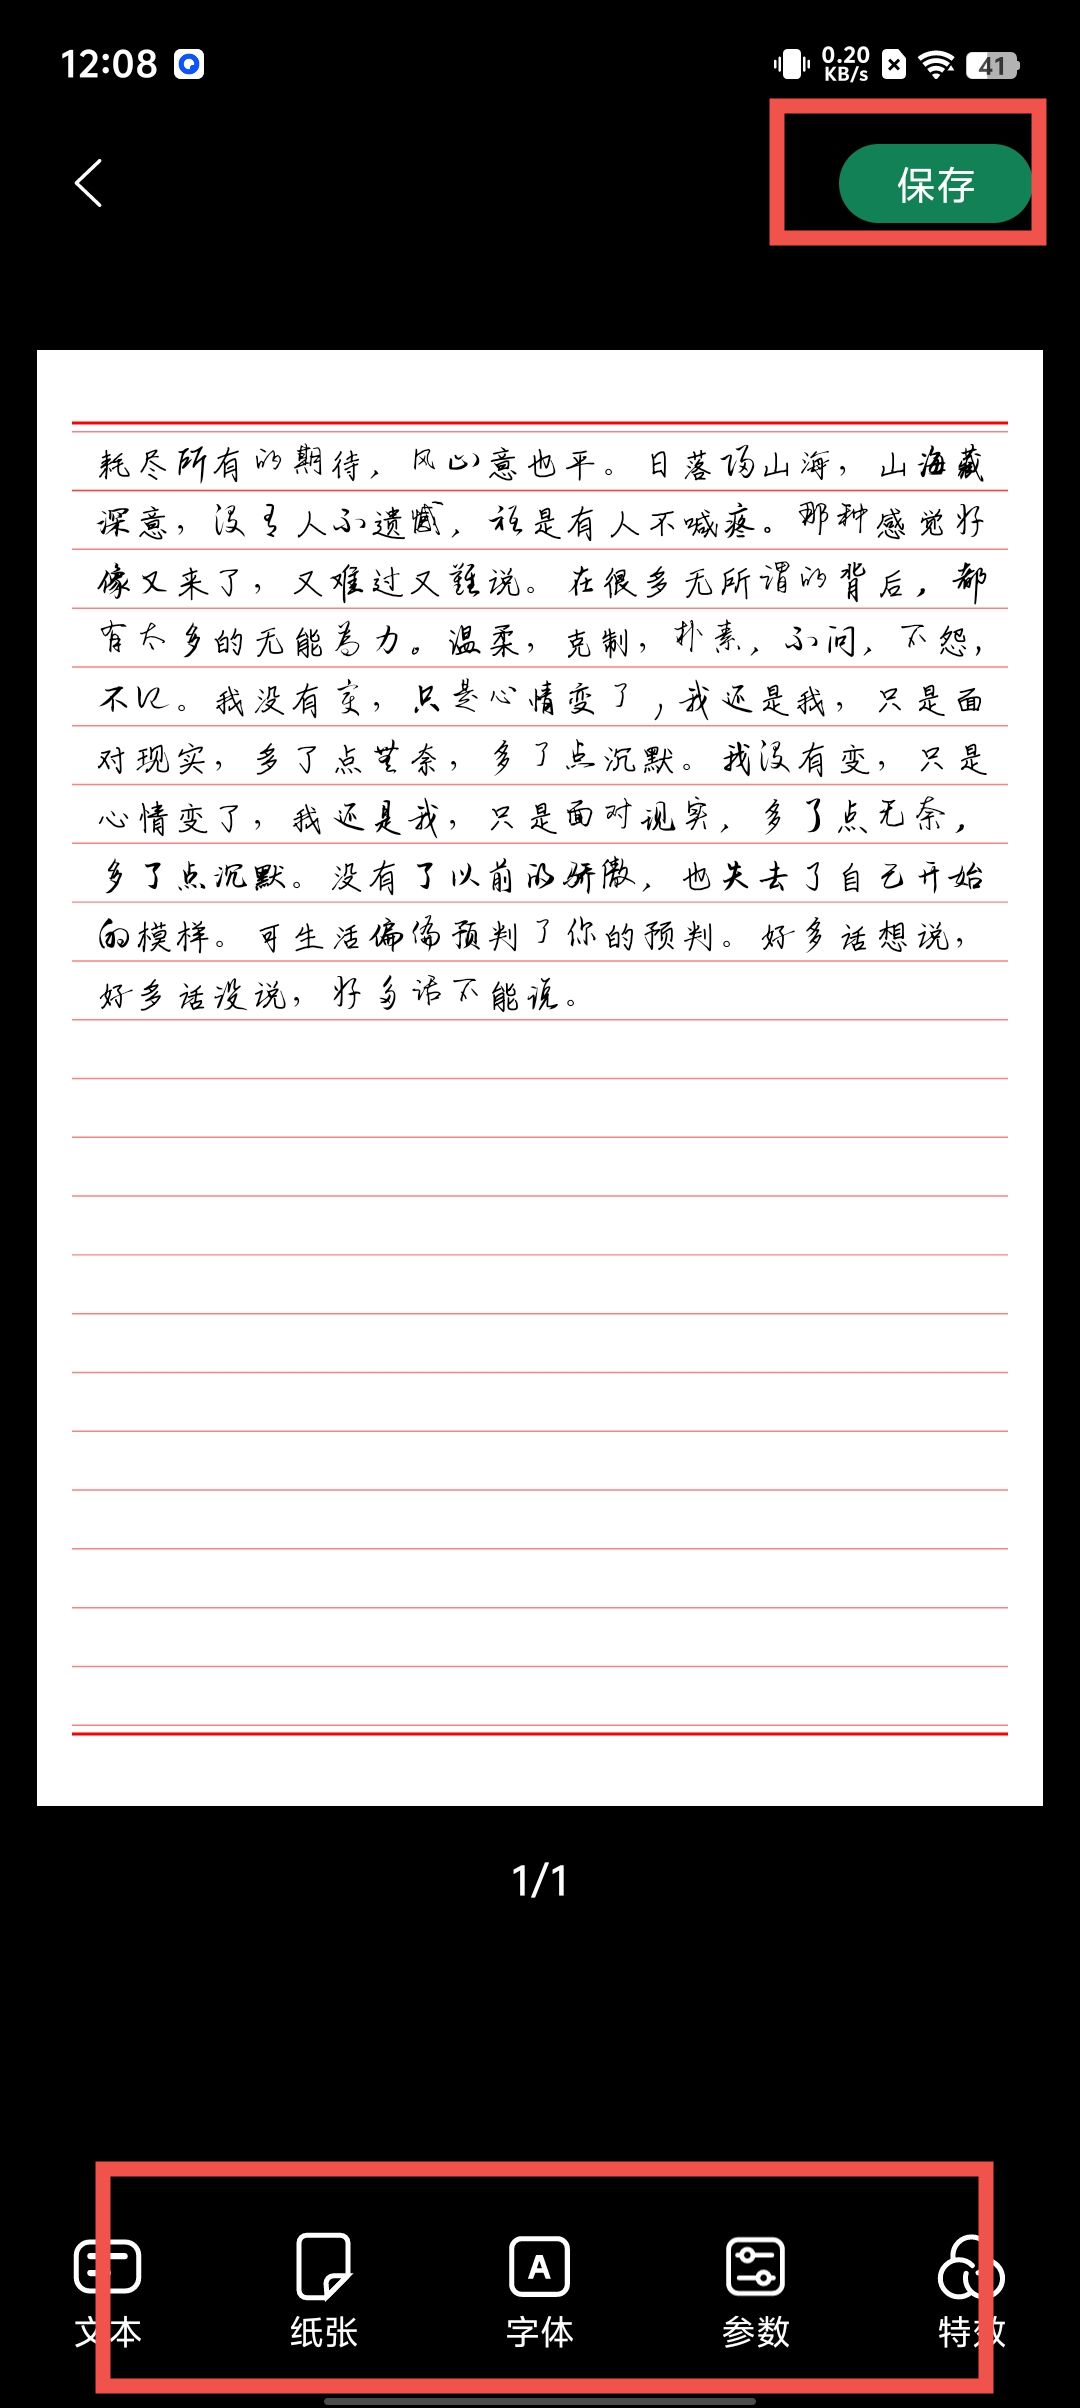 12:08
0.20
KB/s
41
保存
耗尽所有的期待，风山意也平。日落归山海，山海藏
深意，没有人不遗憾，祗是有人不喊疼。那种感觉好
像又来了，又难过又難说。在很多无所谓的背后，都
有太多的无能为力。温柔，克制，朴素，不问，不怨，
不记。我没有变，只是心情变了，我还是我，只是面
对现实，多了点無奈，多了点沉默。我没有变，只是
心情变了，我还是我，只是面对现实，多了点无奈，
多了点沉默。没有了以前的骄傲，也失去了自己开始
的模样。可生活偏偏预判了你的预判。好多话想说，
好多话没说，好多话不能说。
1/1
文本
纸张
字体
参数
特效